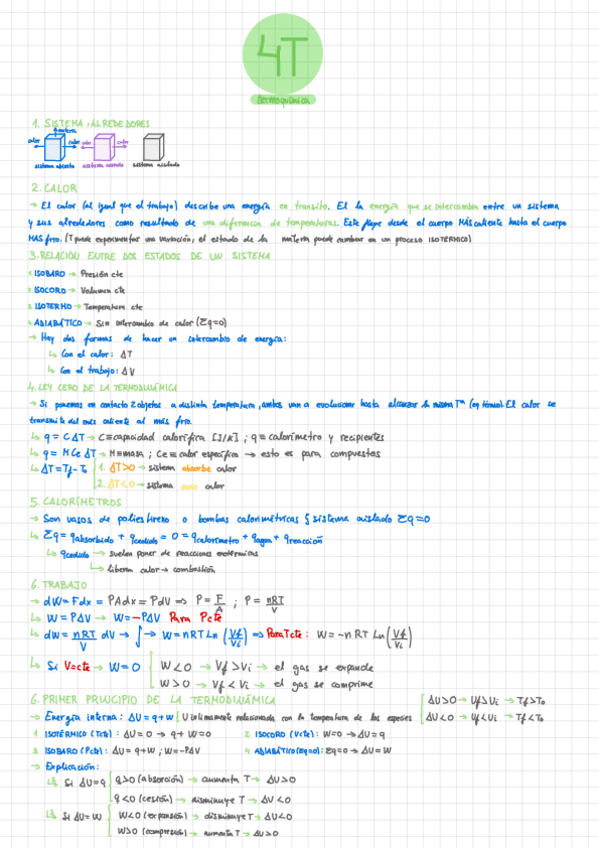 4T
termoquímica
1. SISTEMA, ALREDEDORES
materia
calor calor calor calor
sistema abierto sistema cerrado sistema aislado
2. CALOR
→ El calor (al igual que el trabajo) describe una energía en transito. El la energía que se intercambia entre un sistema
y sus alrededores como resultado de una diferencia de temperaturas. Este fluye desde el cuerpo MÁS caliente hasta el cuerpo
MAS frio. (T puede experimentar una variación, el estado de la materia puede cambiar en un proceso ISOTÉRMICO)
3. RELACIÓN ENTRE DOS ESTADOS DE UN SISTEMA
1. ISOBARO → Presión cte
2. ISOCORO → Volumen cte
3. ISOTERMO → Temperatura cte
4. ADIABÁTICO → Sin intercambio de calor (Σq=0)
→ Hay dos formas de hacer un intercambio de energía:
↳ Con el calor: ΔT
↳ Con el trabajo: ΔV
4. LEY CERO DE LA TERMODINÁMICA
→ Si ponemos en contacto 2 objetos a distinta temperatura, ambos van a evolucionar hasta alcanzar la misma Tª (eq térmico). El calor se
transmite del más caliente al más frío.
↳ q = CΔT → C≡capacidad calorífica [J/K] ; q≡calorímetro y recipientes
↳ q = M Ce ΔT → M≡masa ; Ce≡calor específico → esto es para compuestos
↳ ΔT = Tf - To { 1. ΔT>0 → sistema absorbe calor
2. ΔT<0 → sistema cede calor
5. CALORÍMETROS
→ Son vasos de poliestireno o bombas calorimétricas { sistema aislado Σq=0
↳ Σq = qabsorbido + qcedido = 0 = qcalorímetro + qagua + qreacción
↳ qcedido → suelen poner de reacciones exotérmicas
↳ liberan calor → combustión
6. TRABAJO
→ dW = Fdx = PAdx = PdV ⇒ P = F/A ; P = nRT/V
↳ W = PΔV → W = -PΔV Para Pcte
↳ dW = nRT/V dV → ∫ → W = nRT Ln (Vf/Vi) ⇒ Para Tcte: W = -nRT Ln (Vf/Vi)
↳ Si V=cte → W=0 { W<0 → Vf>Vi → el gas se expande
W>0 → Vf<Vi → el gas se comprime
6. PRIMER PRINCIPIO DE LA TERMODINÁMICA
→ Energía interna: ΔU = q+W { U íntimamente relacionada con la temperatura de las especies { ΔU>0 → Uf>Ui → Tf>To
ΔU<0 → Uf<Ui → Tf<To
1 ISOTÉRMICO (Tcte): ΔU=0 → q+W=0 2 ISOCORO (Vcte): W=0 → ΔU=q
3 ISOBARO (Pcte): ΔU = q+W ; W=-PΔV 4 ADIABÁTICO (Eq=0): Σq=0 → ΔU=W
→ Explicación:
↳ Si ΔU=q { q>0 (absorción) → aumenta T → ΔU>0
q<0 (cesión) → disminuye T → ΔU<0
↳ Si ΔU=W { W<0 (expansión) → disminuye T → ΔU<0
W>0 (compresión) → aumenta T → ΔU>0